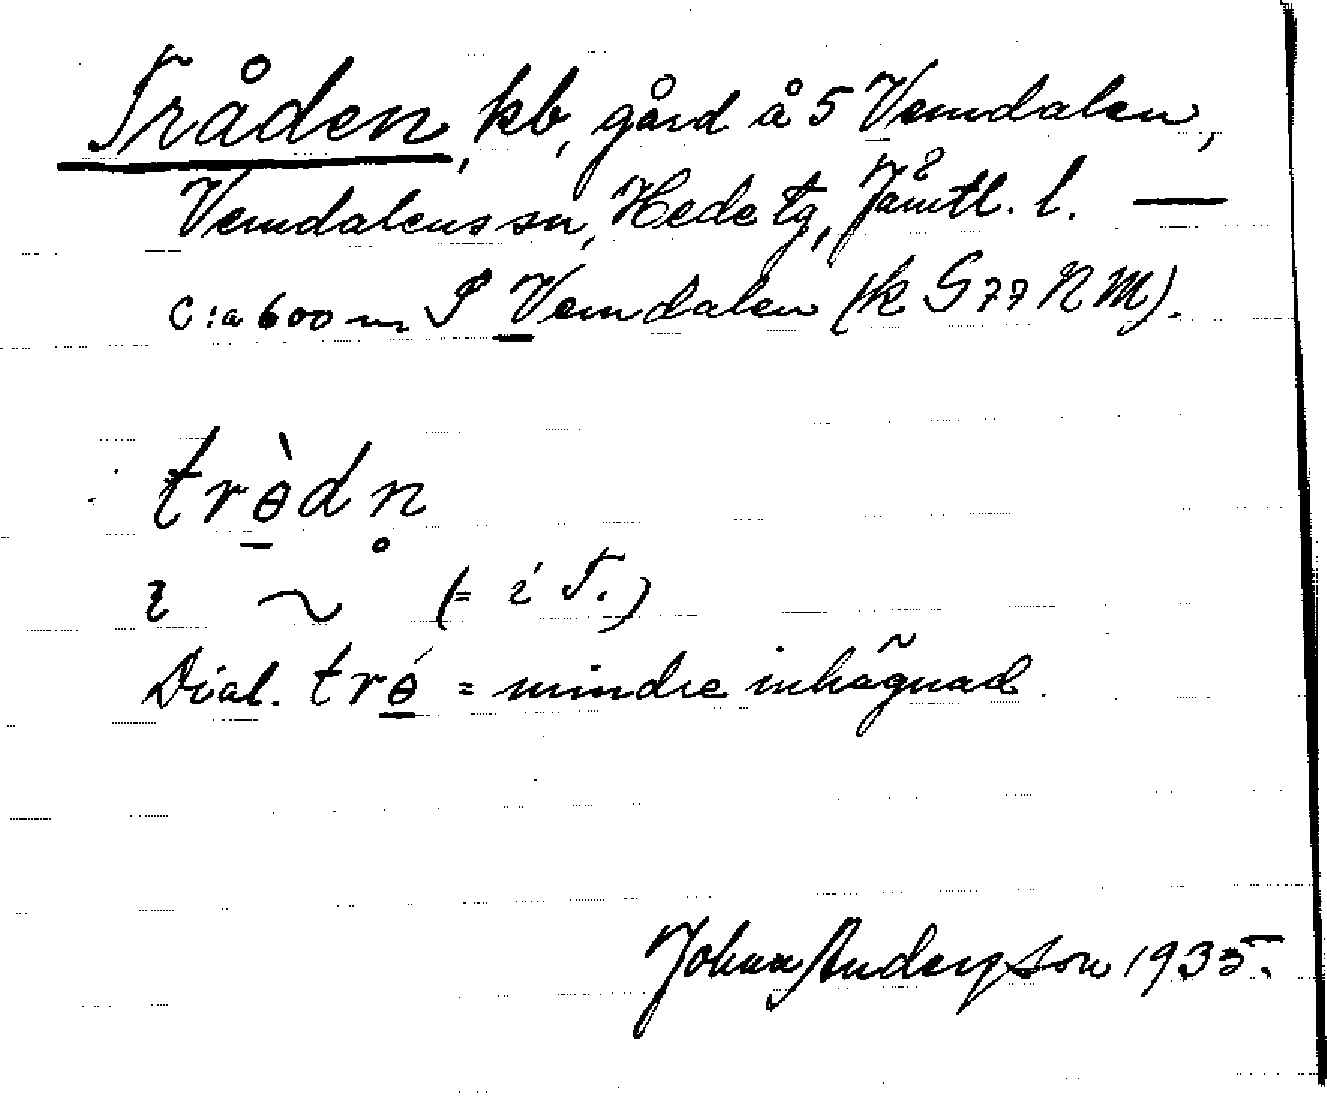 Tråden, kb, gård å 5 Vemdalen,
Vemdalens sn, Hede tg, Jämtl. l. —
c:a 600 m S Vemdalen (k G 77 N M).
trɵ̠̀dn̥
ɩ ~ (= i T.)
Dial. trɵ̠́ = mindre inhägnad.
Johan Anderson 1935.